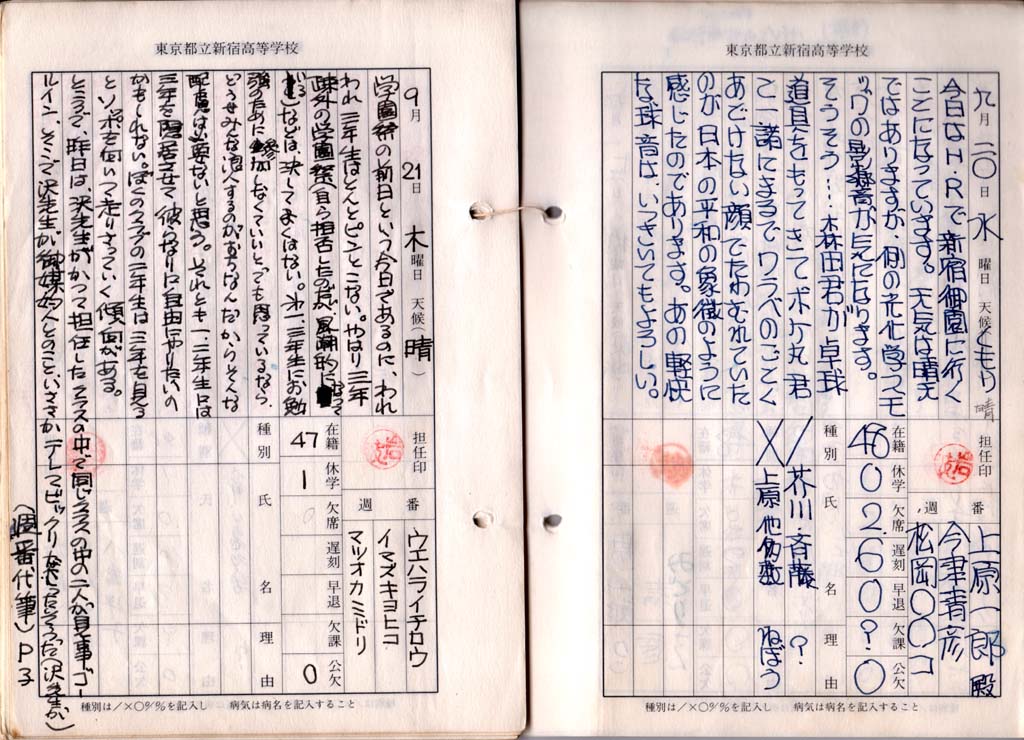 東京都立新宿高等学校
九月二〇日 水曜日 天候くもり 晴
今日はH.Rで新宿御園に行く
ことになっています。天気は晴天
ではありますが、例の光化学スモ
ッグの影響が
そうそう…森田君が卓球
道具をもってきてボケ丸君
と一諸にまるでワラベのごとく
あどけない顔でたわむれていた
のが日本の平和の象徴のように
感じたのであります。あの軽快
な球音は、いつきいてもよろしい。
担任印
週番
上原一郎殿
今津青彦
松岡〇〇コ
在籍 休学 欠席 遅刻 早退 欠課 公欠
48 0 2 6 0 ? 0
種別 氏名 理由
/ 芥川・斉藤 ?
X 上原他多数 ねぼう
種別は/×○%を記入し 病気は病名を記入すること
東京都立新宿高等学校
9月21日 木曜日 天候(晴)
学園祭の前日という今日であるのに、われ
われ三年生はほとんどピンとこない。やはり三年
疎外の学園祭(自ら拒否したのだが
などは、決してよくはない。
強のために参加しなくていいとでも思っているなら、
どうせみんな浪人するのがおちなんだからそんな
配慮は必要ないと思う。それとも一・二年生には
三年を除者させて彼らなりに自由にやりたいの
かもしれない。ぼくのクラブの二年生は三年を見る
とソッポを向いて走りさっていく傾向がある。
ところで、昨日は、沢先生がかつて担任したクラスの中で同じクラスの中の二人が見事ゴー
ルイン、そこで沢先生が御媒酌人とのこといささかテレてビックリなさったそうだ(沢先生が)
(週番代筆)P子
担任印
週番
ウエハライチロウ
イマズキヨヒコ
マツオカミドリ
在籍 休学 欠席 遅刻 早退 欠課 公欠
47 1 0 0
種別 氏名 理由
種別は/×○%を記入し 病気は病名を記入すること